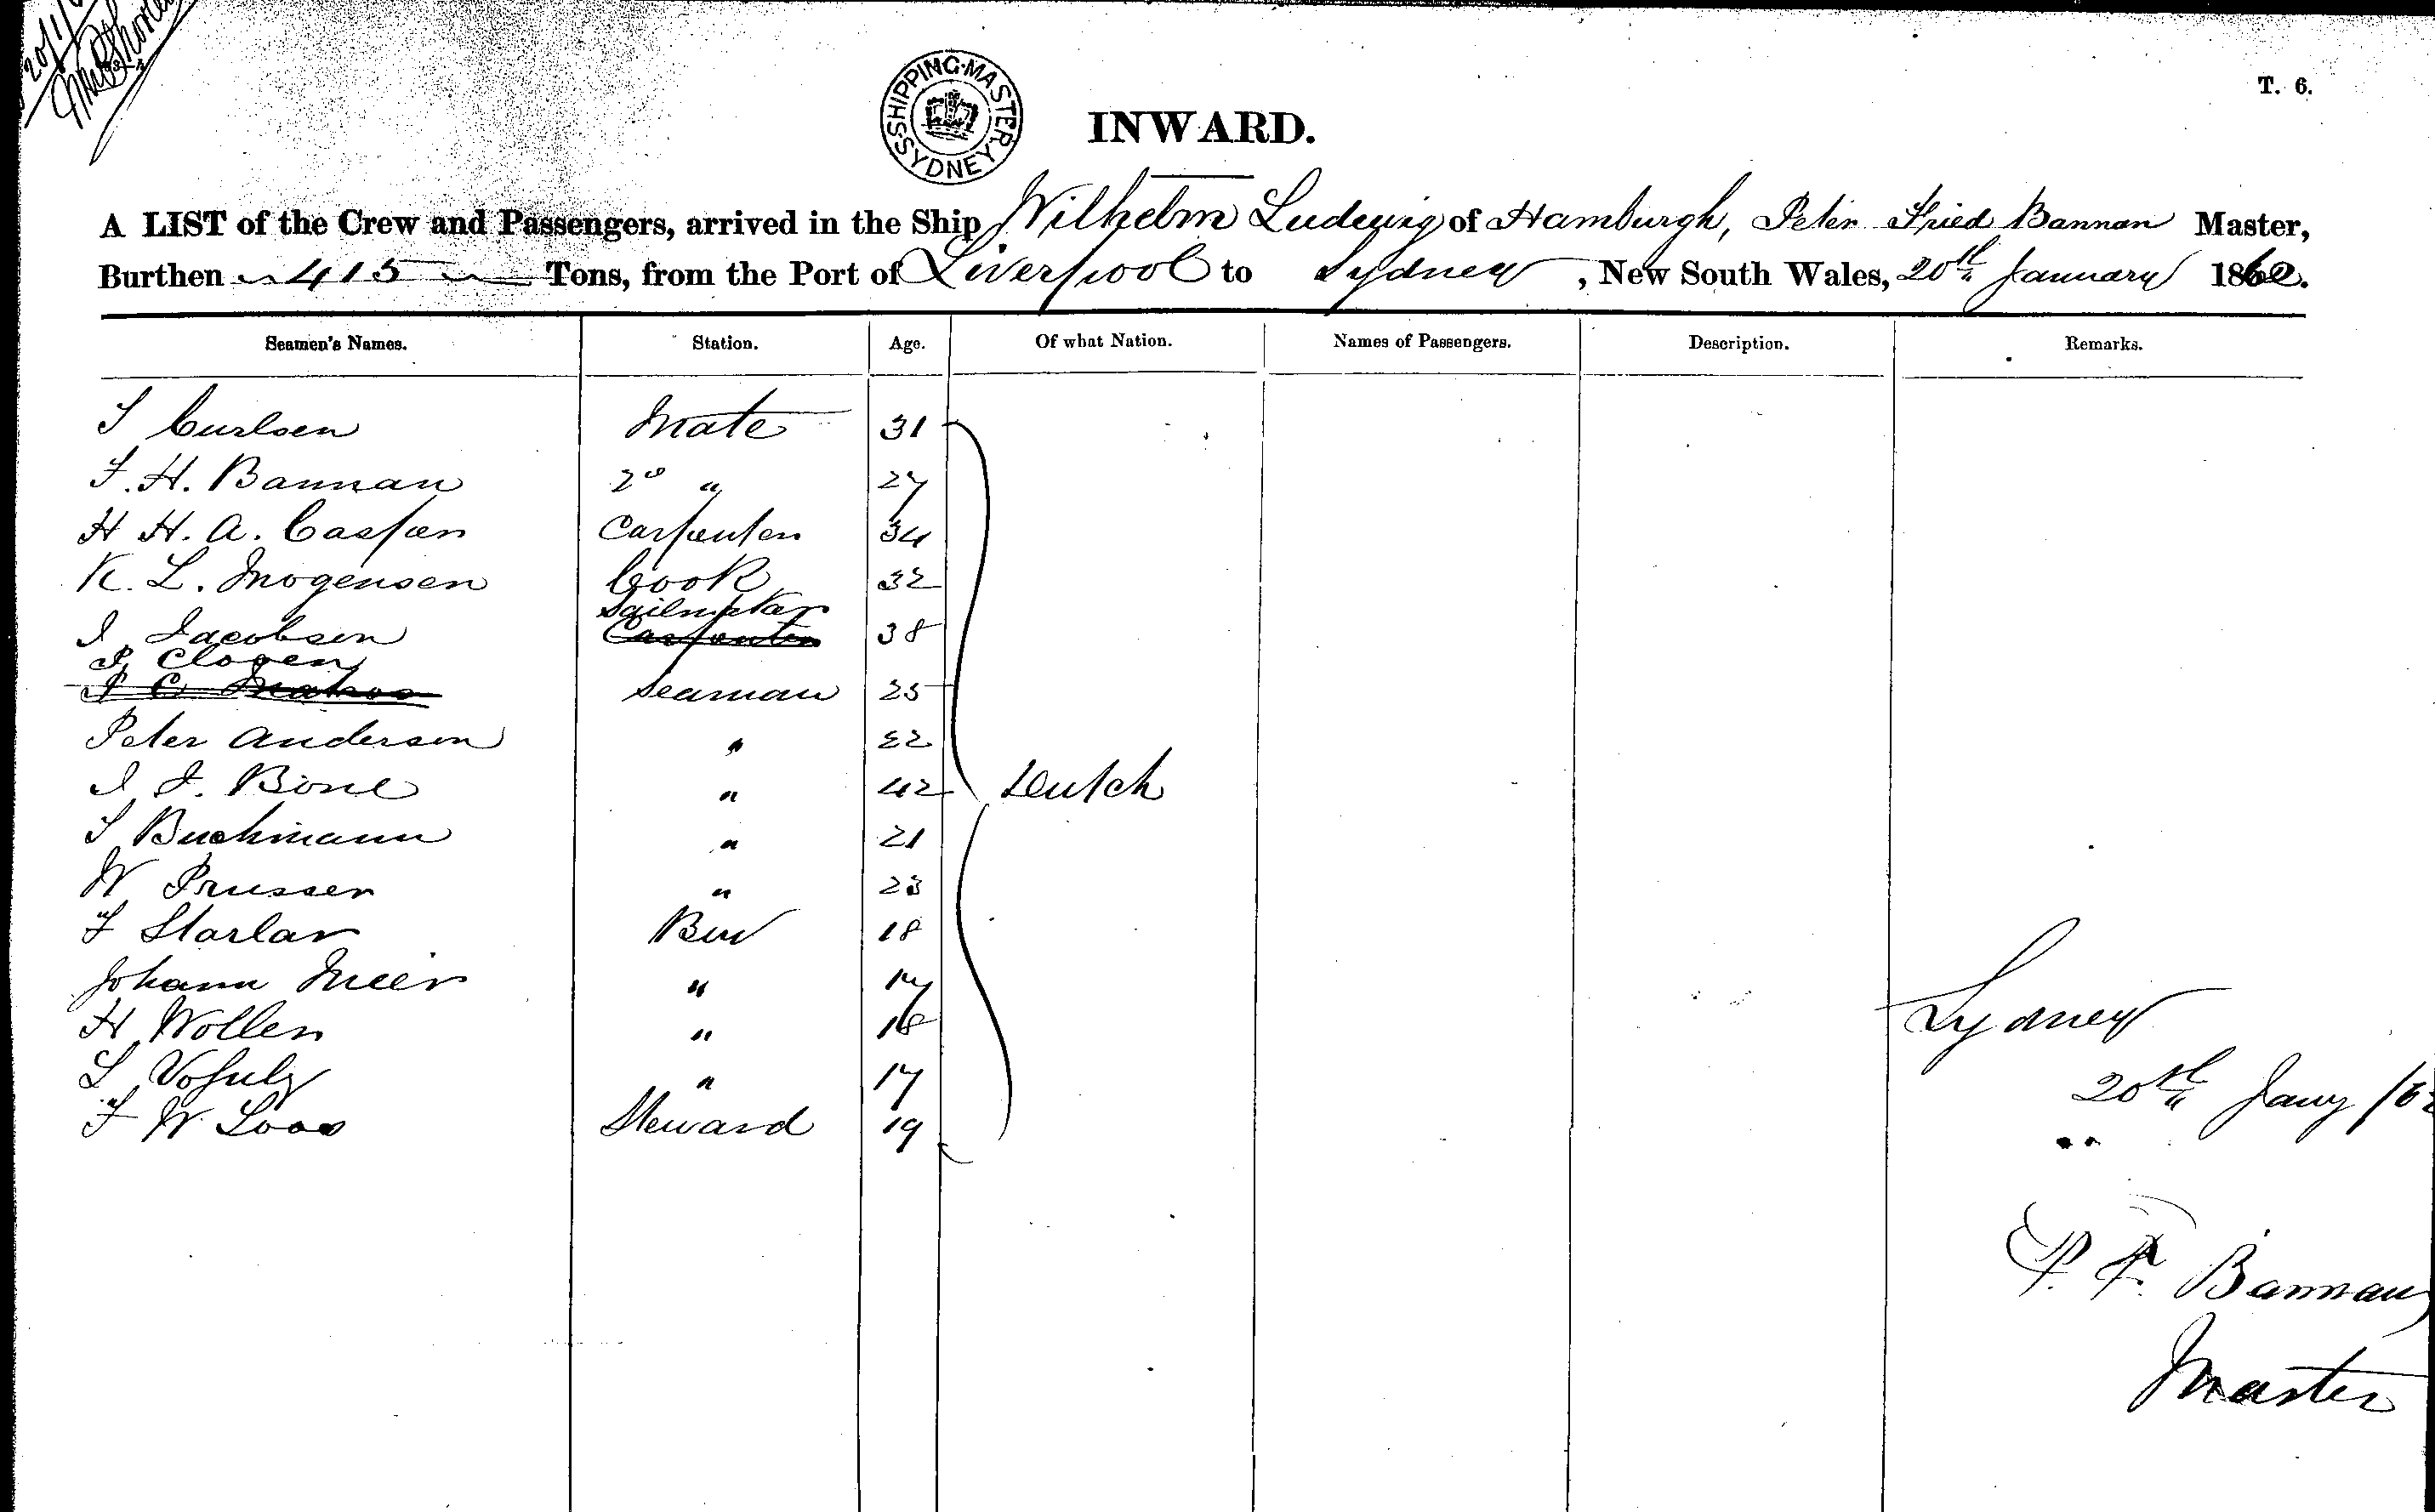 20/1/6
T. 6.
SHIPPING MASTER SYDNEY
INWARD.
A LIST of the Crew and Passengers, arrived in the Ship Wilhelm Ludewig of Hamburgh, Peter Fried Bannan Master,
Burthen 415 Tons, from the Port of Liverpool to Sydney, New South Wales, 20th January 1862.
Seamen's Names. Station. Age. Of what Nation. Names of Passengers. Description. Remarks.
Mate 31
F. H. Bannan 2d " 27
H H. A. Caspen Carpenter 34
K. L. Mogensen Cook 32
Sailmaker
J Jacobsen Carpenter 38
P Clogen
Seaman 25
Peter Anderson " 22
J J. Bone " 42 Dutch
J Buchmann " 21
W Prusser " 23
F Starlar Boy 18
Johann Meer " 17
H Wollen " 18
" 17
F W Loos Steward 19
Sydney
20th Jany /62
P. F. Bannan
Master